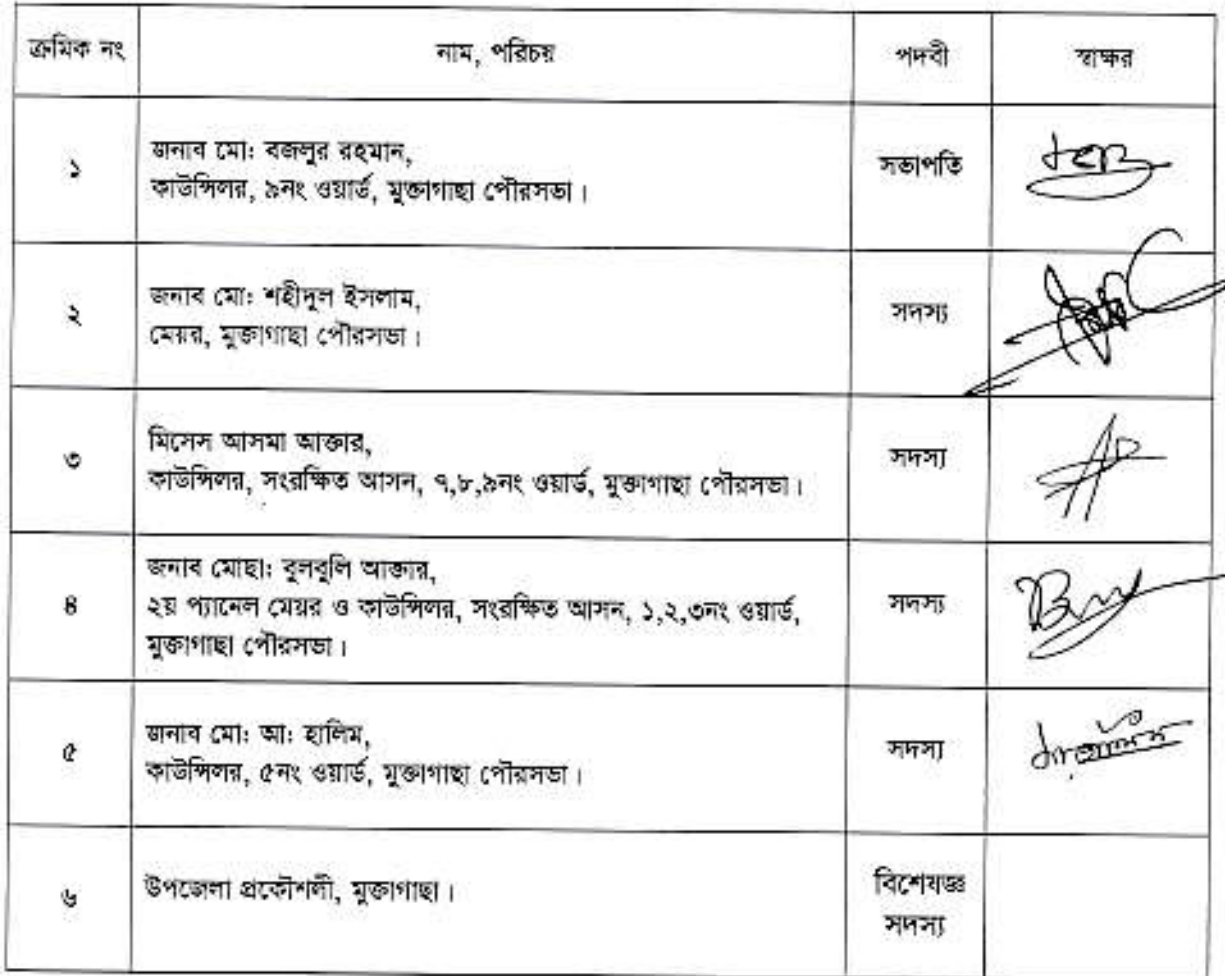 ক্রমিক নং নাম, পরিচয় পদবী স্বাক্ষর
১ জনাব মো: বজলুর রহমান,
কাউন্সিলর, ৯নং ওয়ার্ড, মুক্তাগাছা পৌরসভা। সভাপতি
২ জনাব মো: শহীদুল ইসলাম,
মেয়র, মুক্তাগাছা পৌরসভা। সদস্য
৩ মিসেস আসমা আক্তার,
কাউন্সিলর, সংরক্ষিত আসন, ৭,৮,৯নং ওয়ার্ড, মুক্তাগাছা পৌরসভা। সদস্য
৪ জনাব মোছা: বুলবুলি আক্তার,
২য় প্যানেল মেয়র ও কাউন্সিলর, সংরক্ষিত আসন, ১,২,৩নং ওয়ার্ড, সদস্য
মুক্তাগাছা পৌরসভা।
৫ জনাব মো: আ: হালিম,
কাউন্সিলর, ৫নং ওয়ার্ড, মুক্তাগাছা পৌরসভা। সদস্য
৬ উপজেলা প্রকৌশলী, মুক্তাগাছা। বিশেষজ্ঞ
সদস্য